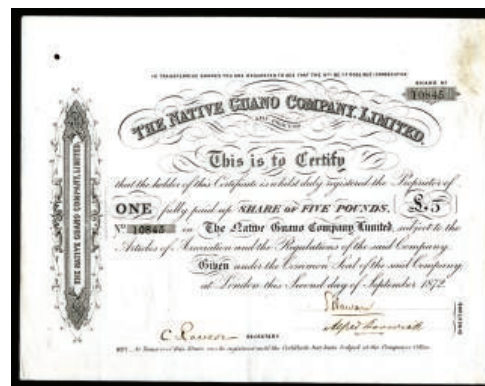 IN TRANSFERRING SHARES YOU ARE REQUESTED TO SEE THAT THE
SHARE Nº
10845
THE NATIVE GUANO COMPANY, LIMITED.
This is to Certify
that the holder of this Certificate is whilst duly registered the Proprietor of
ONE fully paid up SHARE OF FIVE POUNDS, £5
Nº 10845 in The Native Guano Company Limited, subject to the
Articles of Association and the Regulations of the said Company.
Given under the Common Seal of the said Company,
at London this Second day of September 1872.
DIRECTORS
SECRETARY
THE NATIVE GUANO COMPANY, LIMITED.